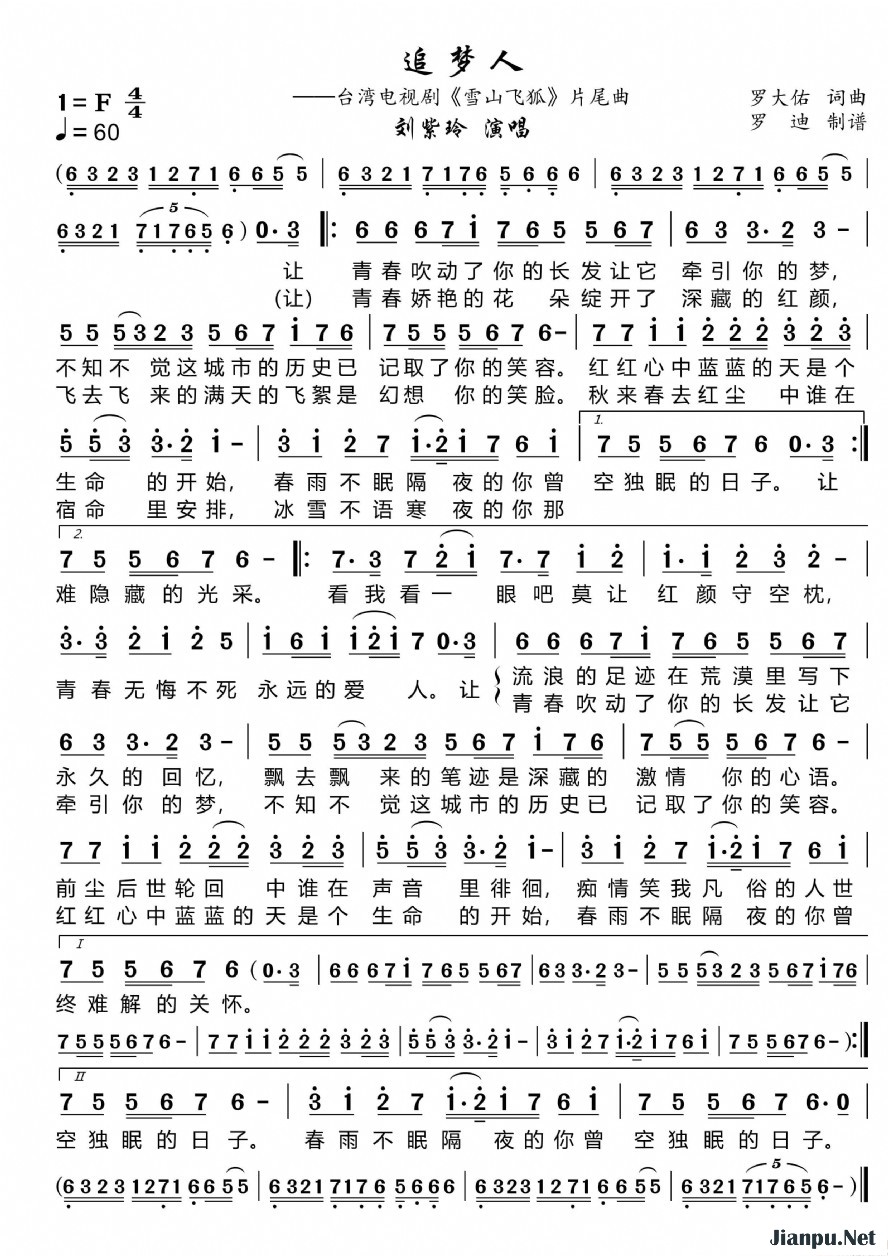 追梦人
1=F 4/4
——台湾电视剧《雪山飞狐》片尾曲
罗大佑 词曲
♩=60
刘紫玲 演唱
罗 迪 制谱
(6 3 2 3 1 2 7 1 6 6 5 5 | 6 3 2 1 7 1 7 6 5 6 6 | 6 3 2 3 1 2 7 1 6 6 5 5 |
5
6 3 2 1 7 1 7 6 5 6) 0·3 ‖: 6 6 6 7 i 7 6 5 5 6 7 | 6 3 3·2 3 – |
让 青春吹动了你的长发让它 牵引你的梦,
(让) 青春娇艳的花 朵绽开了 深藏的红颜,
5 5 5 3 2 3 5 6 7 i 7 6 | 7 5 5 5 6 7 6 – | 7 7 i i 2 2 2 3 2 3 |
不知不 觉这城市的历史已 记取了你的笑容。红红心中蓝蓝的天是个
飞去飞 来的满天的飞絮是 幻想 你的笑脸。秋来春去红尘 中谁在
1.
5 5 3 3·2 i – | 3 i 2 7 i·2 i 7 6 i | 7 5 5 6 7 6 0·3 :‖
生命 的开始, 春雨不眠隔 夜的你曾 空独眠的日子。让
宿命 里安排, 冰雪不语寒 夜的你那
2.
7 5 5 6 7 6 – ‖: 7·3 7 2 i 7·7 i 2 | i·i 2 3 2 – |
难隐藏的光采。 看我看一 眼吧莫让 红颜守空枕,
3·3 2 i 2 5 | i 6 i i 2 i 7 0·3 | 6 6 6 7 i 7 6 5 5 6 7 |
青春无悔不死 永远的爱 人。让
流浪的足迹在荒漠里写下
青春吹动了你的长发让它
6 3 3·2 3 – | 5 5 5 3 2 3 5 6 7 i 7 6 | 7 5 5 5 6 7 6 – |
永久的回忆, 飘去飘 来的笔迹是深藏的 激情 你的心语。
牵引你的梦, 不知不 觉这城市的历史已 记取了你的笑容。
7 7 i i 2 2 2 3 2 3 | 5 5 3 3·2 i – | 3 i 2 7 i·2 i 7 6 i |
前尘后世轮回 中谁在 声音 里徘徊, 痴情笑我凡 俗的人世
红红心中蓝蓝的天是个 生命 的开始, 春雨不眠隔 夜的你曾
I
7 5 5 6 7 6 (0·3 | 6 6 6 7 i 7 6 5 5 6 7 | 6 3 3·2 3 – | 5 5 5 3 2 3 5 6 7 i 7 6
终难解的关怀。
7 5 5 5 6 7 6 – | 7 7 i i 2 2 2 3 2 3 | 5 5 3 3·2 i – | 3 i 2 7 i·2 i 7 6 i | 7 5 5 6 7 6 – ) :‖
II
7 5 5 6 7 6 – | 3 i 2 7 i·2 i 7 6 i | 7 5 5 6 7 6·0
空独眠的日子。 春雨不眠隔 夜的你曾 空独眠的日子。
5
(6 3 2 3 1 2 7 1 6 6 5 5 | 6 3 2 1 7 1 7 6 5 6 6 | 6 3 2 3 1 2 7 1 6 6 5 5 | 6 3 2 1 7 1 7 6 5 6 – )‖
Jianpu.Net